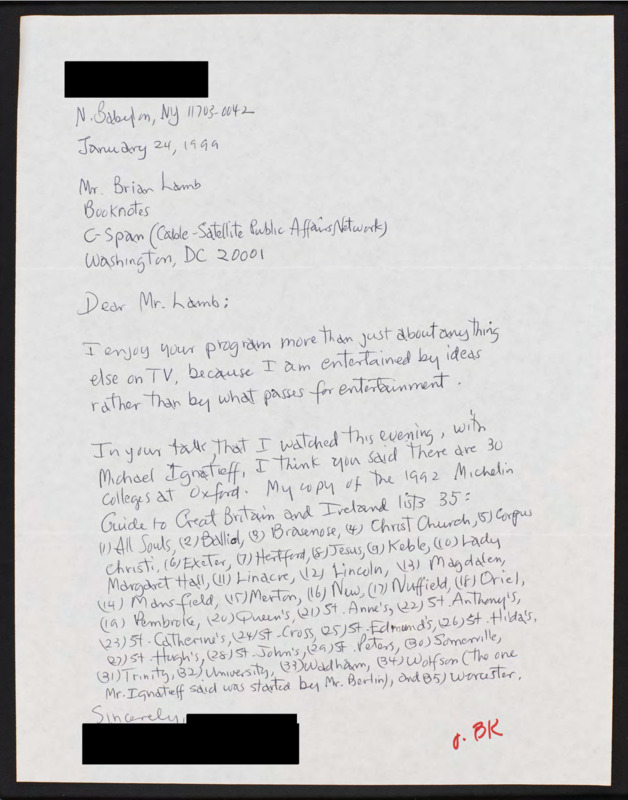 N. Babylon, NY 11703-0042
January 24, 1999
Mr. Brian Lamb
Booknotes
C-Span (Cable-Satellite Public Affairs Network)
Washington, DC 20001
Dear Mr. Lamb:
I enjoy your program more than just about anything
else on TV, because I am entertained by ideas
rather than by what passes for entertainment.
In your talk that I watched this evening, with
Michael Ignatieff, I think you said there are 30
colleges at Oxford. My copy of the 1992 Michelin
Guide to Great Britain and Ireland lists 35:
(1) All Souls, (2) Balliol, (3) Brasenose, (4) Christ Church, (5) Corpus
Christi, (6) Exeter, (7) Hertford, (8) Jesus, (9) Keble, (10) Lady
Margaret Hall, (11) Linacre, (12) Lincoln, (13) Magdalen,
(14) Mansfield, (15) Merton, (16) New, (17) Nuffield, (18) Oriel,
(19) Pembroke, (20) Queen's, (21) St. Anne's, (22) St. Anthony's,
(23) St. Catherine's, (24) St. Cross, (25) St. Edmund's, (26) St. Hilda's,
(27) St. Hugh's, (28) St. John's, (29) St. Peters, (30) Somerville,
(31) Trinity, (32) University, (33) Wadham, (34) Wolfson (The one
Mr. Ignatieff said was started by Mr. Berlin), and (35) Worcester.
Sincerely,
BK